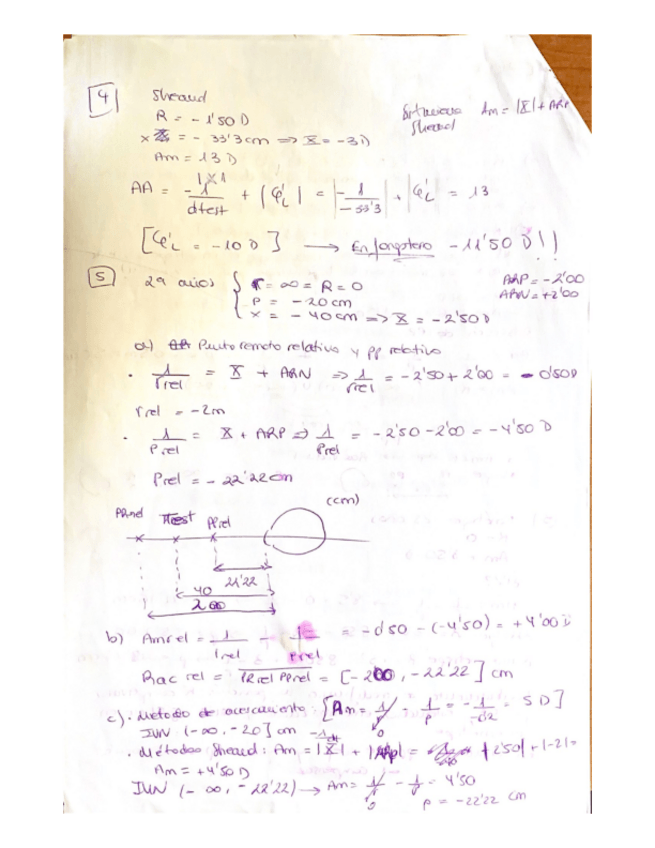 4 Sheard
R = - 1'50 D
x = - 33'3cm => X = -3D
Am = 13 D
Am = |X| + ARP
Sheard
AA = - 1/dtest + |φ'L| = |- 1/-33'3| + |φ'L| = 13
[φ'L = -10 D] → En longitero - 11'50 D!!
5 29 años { r = ∞ = R = 0
P = - 20 cm
x = - 40 cm => X = - 2'50 D
ARP = - 2'00
ARN = + 2'00
a) Punto remoto relativo y pp relativo
· 1/rrel = X + ARN => 1/rrel = - 2'50 + 2'00 = - 0'50D
rrel = - 2m
· 1/Prel = X + ARP => 1/Prel = - 2'50 - 2'00 = - 4'50 D
Prel = - 22'22 cm
(cm)
PRrel Test PPrel
22'22
40
200
b) Amrel = 1/rrel - 1/Prel = - 0'50 - (-4'50) = + 4'00 D
Rac rel = PRrel PPrel = [- 200, - 22'22] cm
c) · Método de acercamiento: [Am = 1/r - 1/p = - 1/-0'2 = 5 D]
IUN (-∞, -20] cm
· Métodos Sheard: Am = |X| + |ARP| = |2'50| + |-2| =
Am = + 4'50 D
IUN (- ∞, - 22'22) → Am = 1/r - 1/p = 4'50
0 p = - 22'22 cm